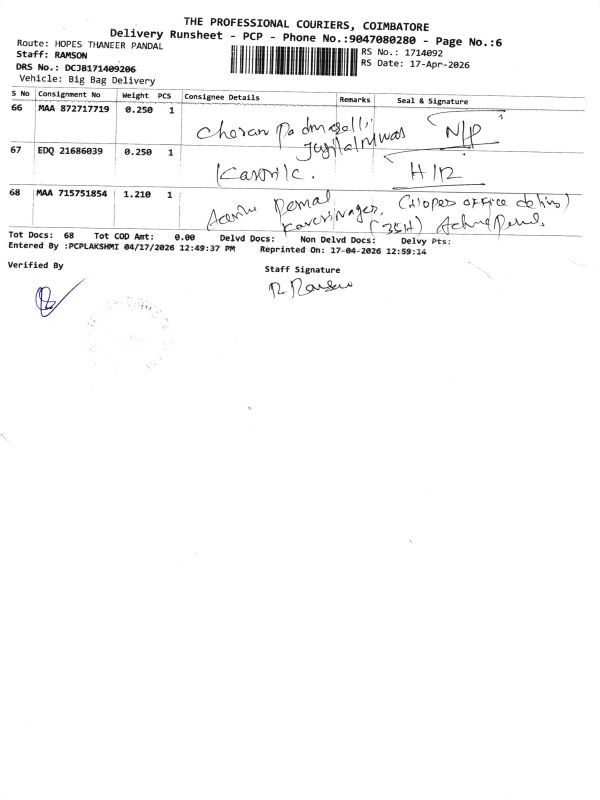 THE PROFESSIONAL COURIERS, COIMBATORE
Delivery Runsheet - PCP - Phone No.:9047080280 - Page No.:6
Route: HOPES THANEER PANDAL
RS No.: 1714092
Staff: RAMSON
RS Date: 17-Apr-2026
DRS No.: DCJB171409206
Vehicle: Big Bag Delivery
S No Consignment No Weight PCS Consignee Details Remarks Seal & Signature
66 MAA 872717719 0.250 1
N/P
67 EDQ 21686039 0.250 1
68 MAA 715751854 1.210 1
Tot Docs: 68 Tot COD Amt: 0.00 Delvd Docs: Non Delvd Docs: Delvy Pts:
Entered By :PCPLAKSHMI 04/17/2026 12:49:37 PM Reprinted On: 17-04-2026 12:59:14
Verified By
Staff Signature